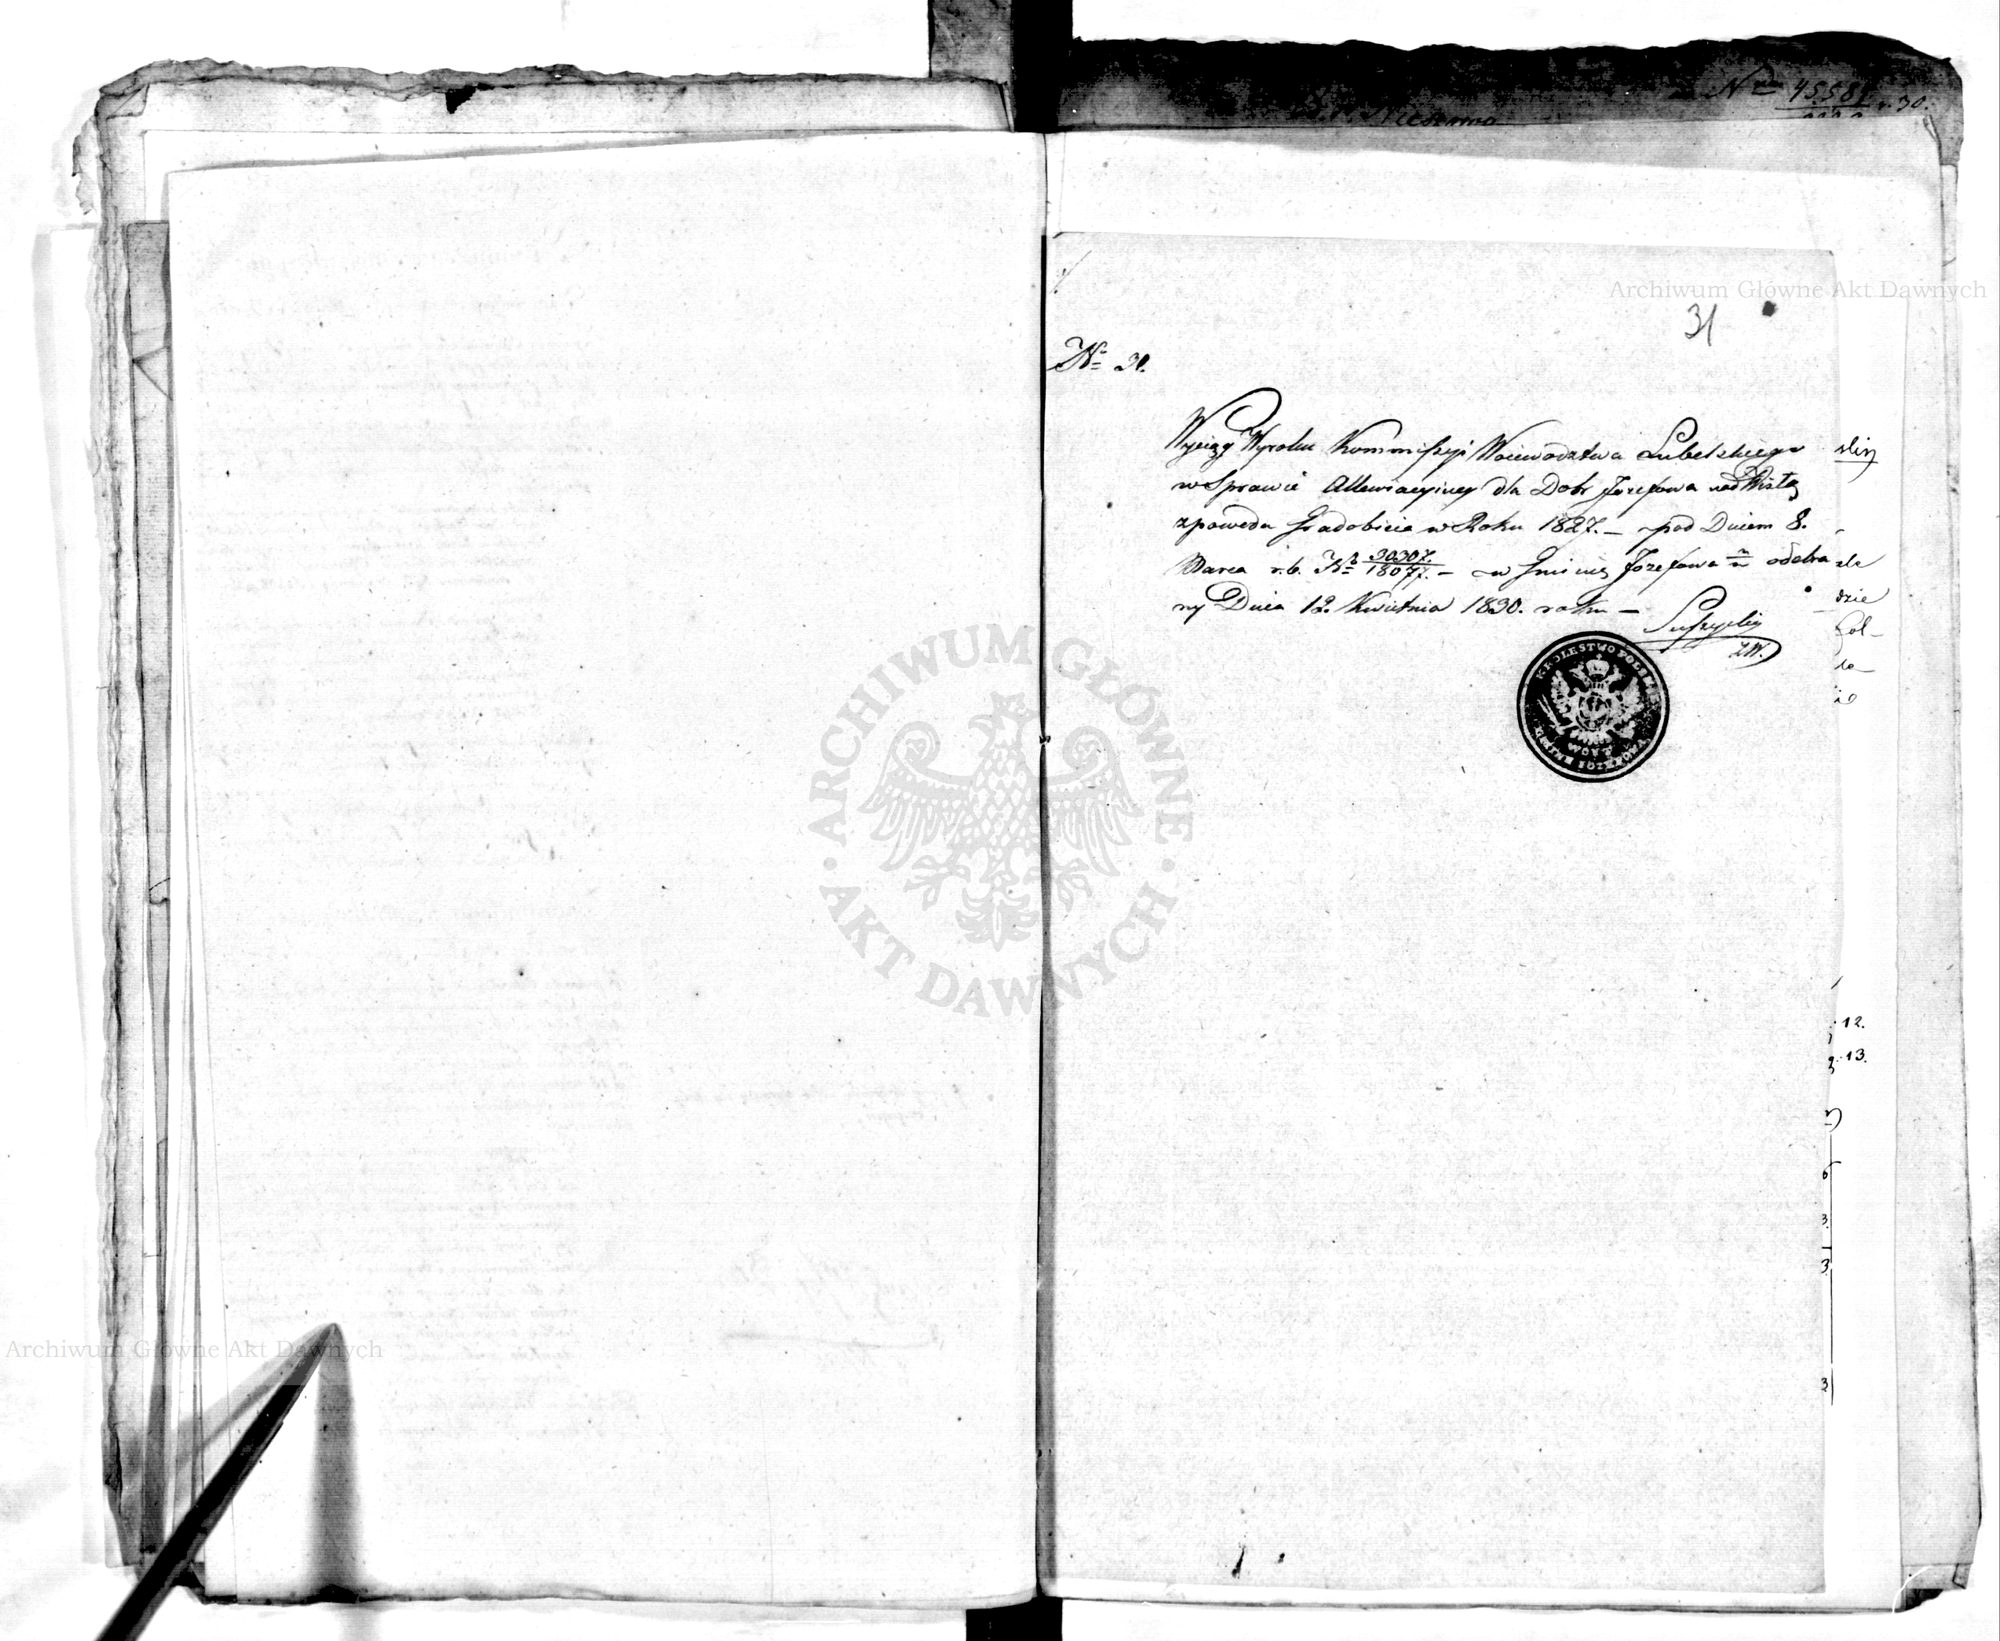 Nro 45581 r. 30.
Archiwum Główne Akt Dawnych
31
№ 31.
Wyciąg Wyroku Kommissyi Woiewodztwa Lubelskiego
w Sprawie Allewiacyiney dla Dobr Jozefowa nad Wisłą
z powodu Gradobicia w Roku 1827. — pod Dniem 8.
Marca r. b. № 30307./18077. — w Gminie Jozefowa odebra
ny Dnia 12. Kwietnia 1830. roku —
Z.W.
KROLESTWO POLSKIE
WOYT
GMINY IOZEFOWA
ARCHIWUM GŁÓWNE
AKT DAWNYCH
dzie
12.
13.
3.
3
3
Archiwum Główne Akt Dawnych